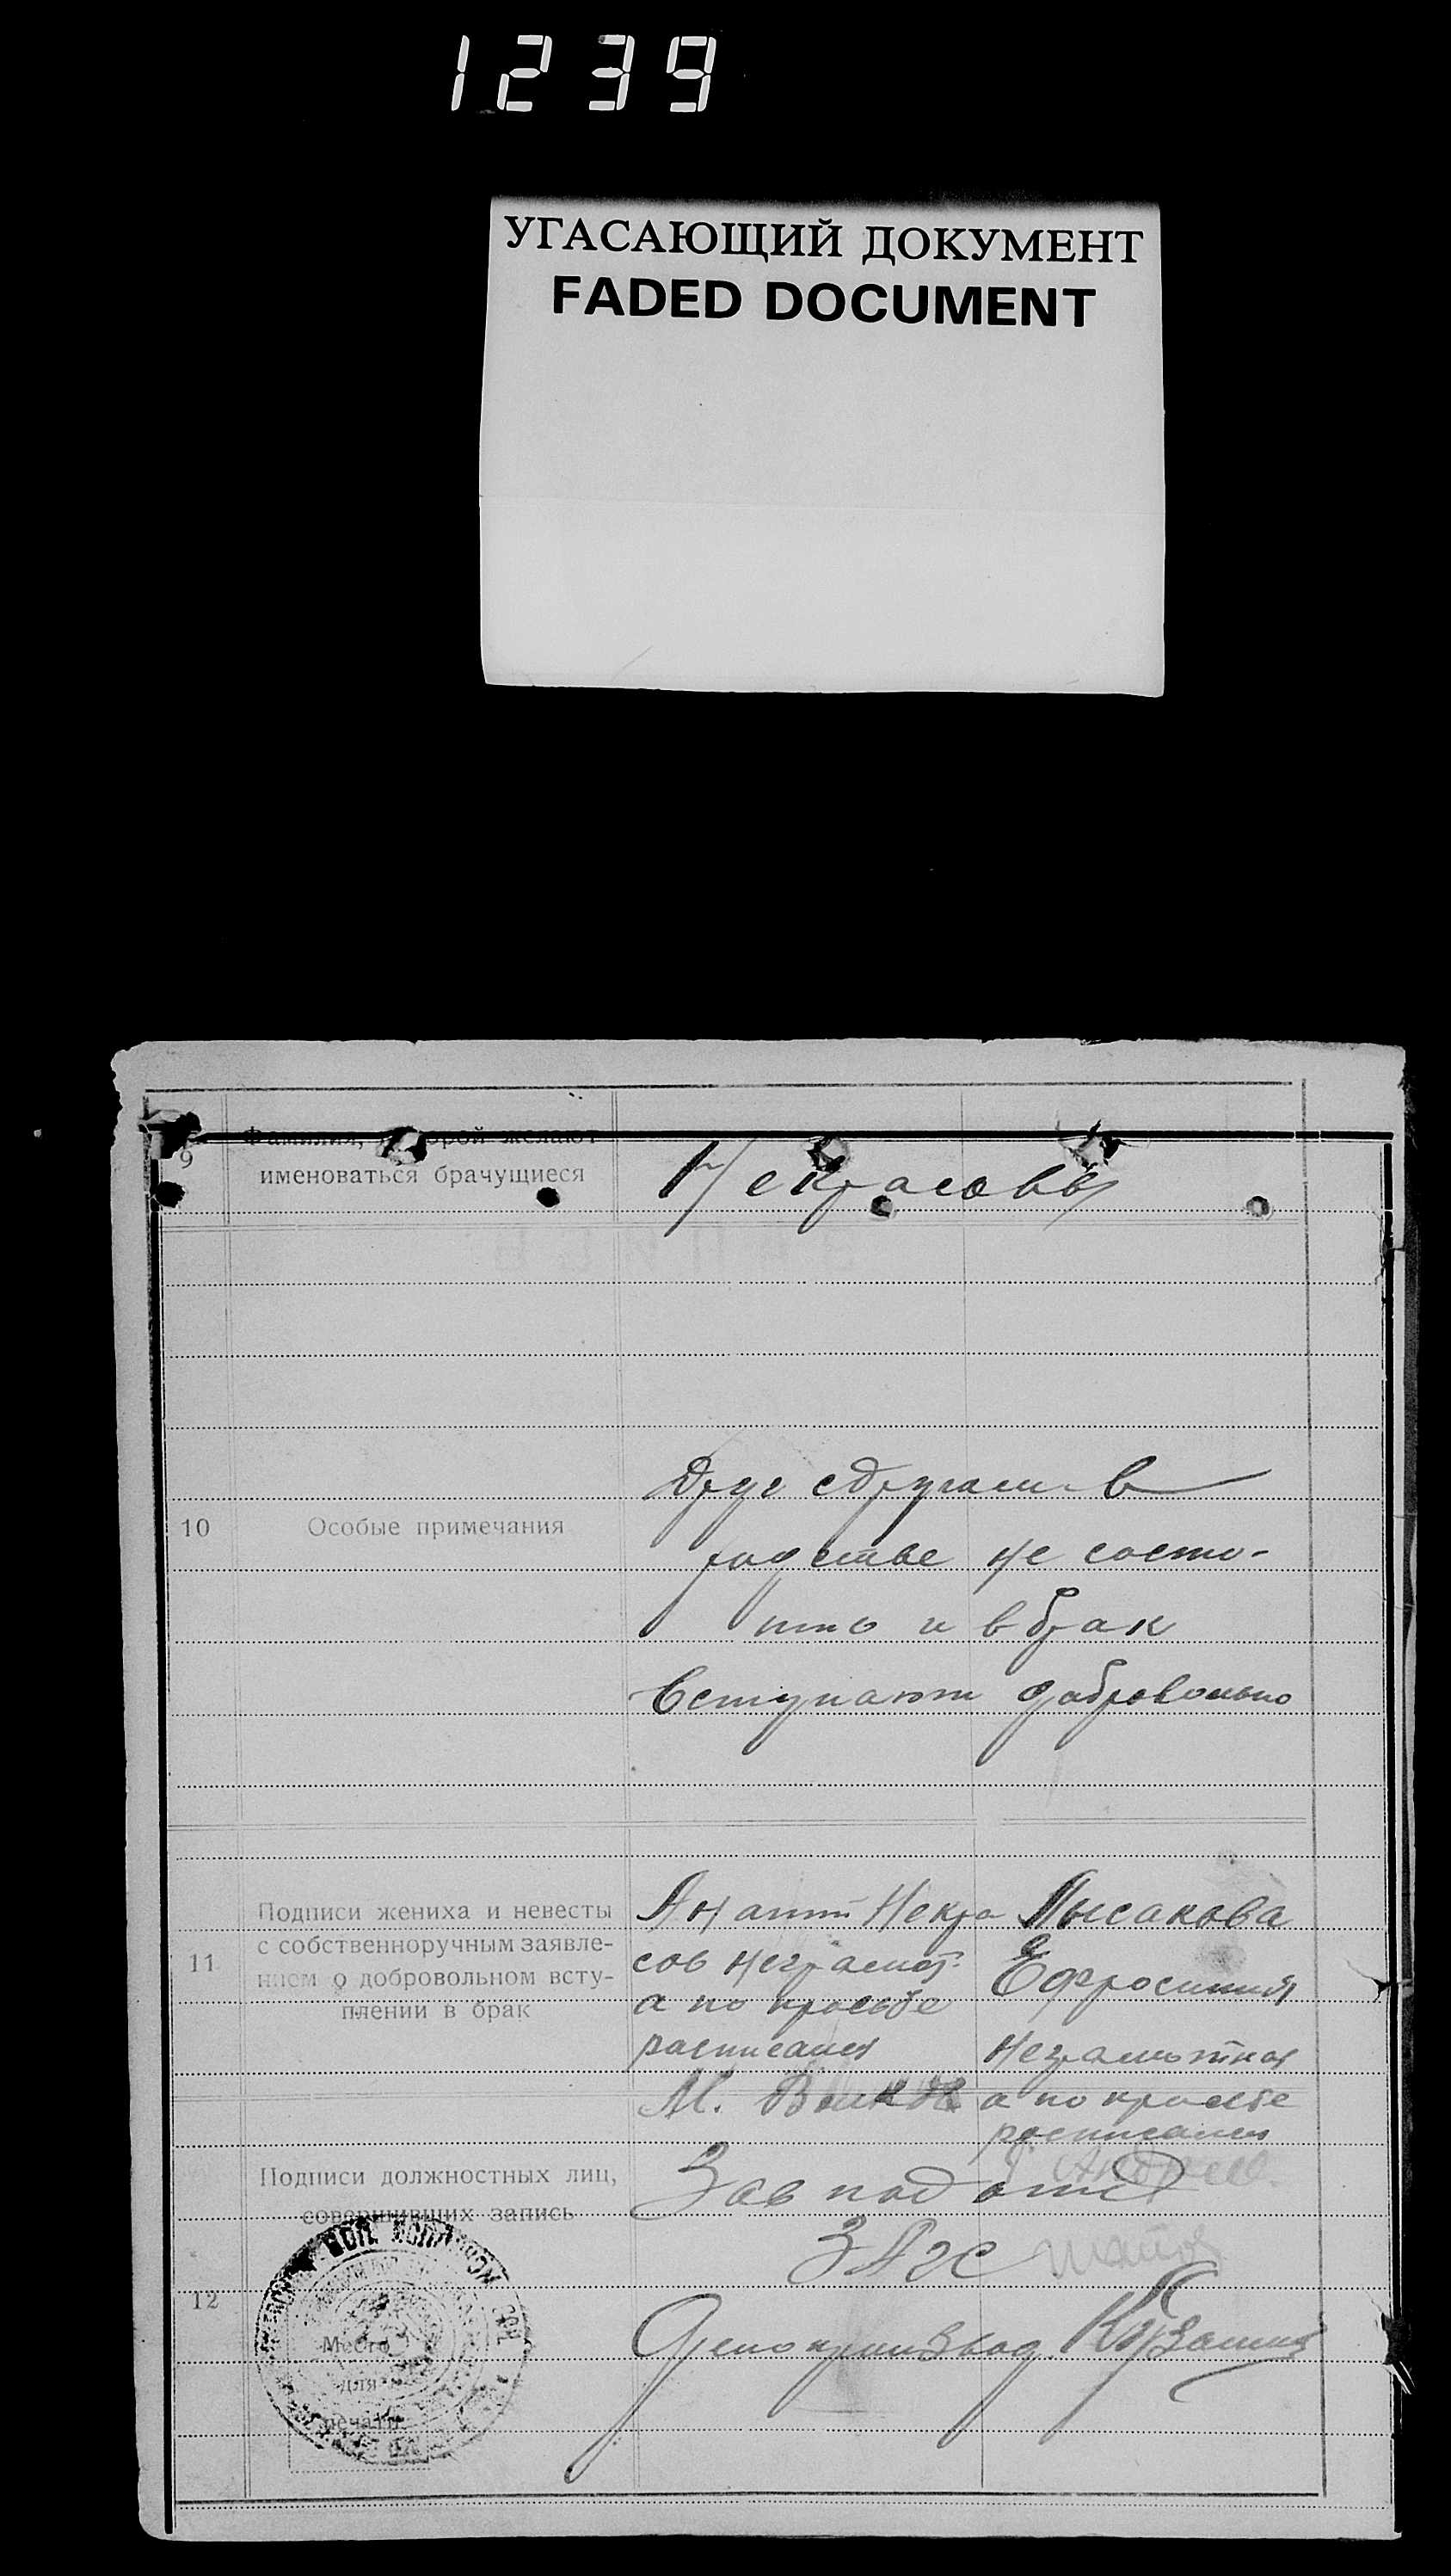 1239
УГАСАЮЩИЙ ДОКУМЕНТ
FADED DOCUMENT
9
Фамилия, которой желают
именоваться брачущиеся
Некрасовы
10
Особые примечания
Друг сдругами в
родстве не состо-
ят и в брак
вступают добровольно
11
Подписи жениха и невесты
с собственноручным заявле-
нием о добровольном всту-
плении в брак
Некра
сов неграмот.
а по прозьбе
расписался
М. Волков
Лысакова
Ефросиния
неграмотная
а по прозьбе
расписался
12
Подписи должностных лиц,
совершивших запись
Зав под отд
ЗАГС
Делопризвод.
Место
для
печати